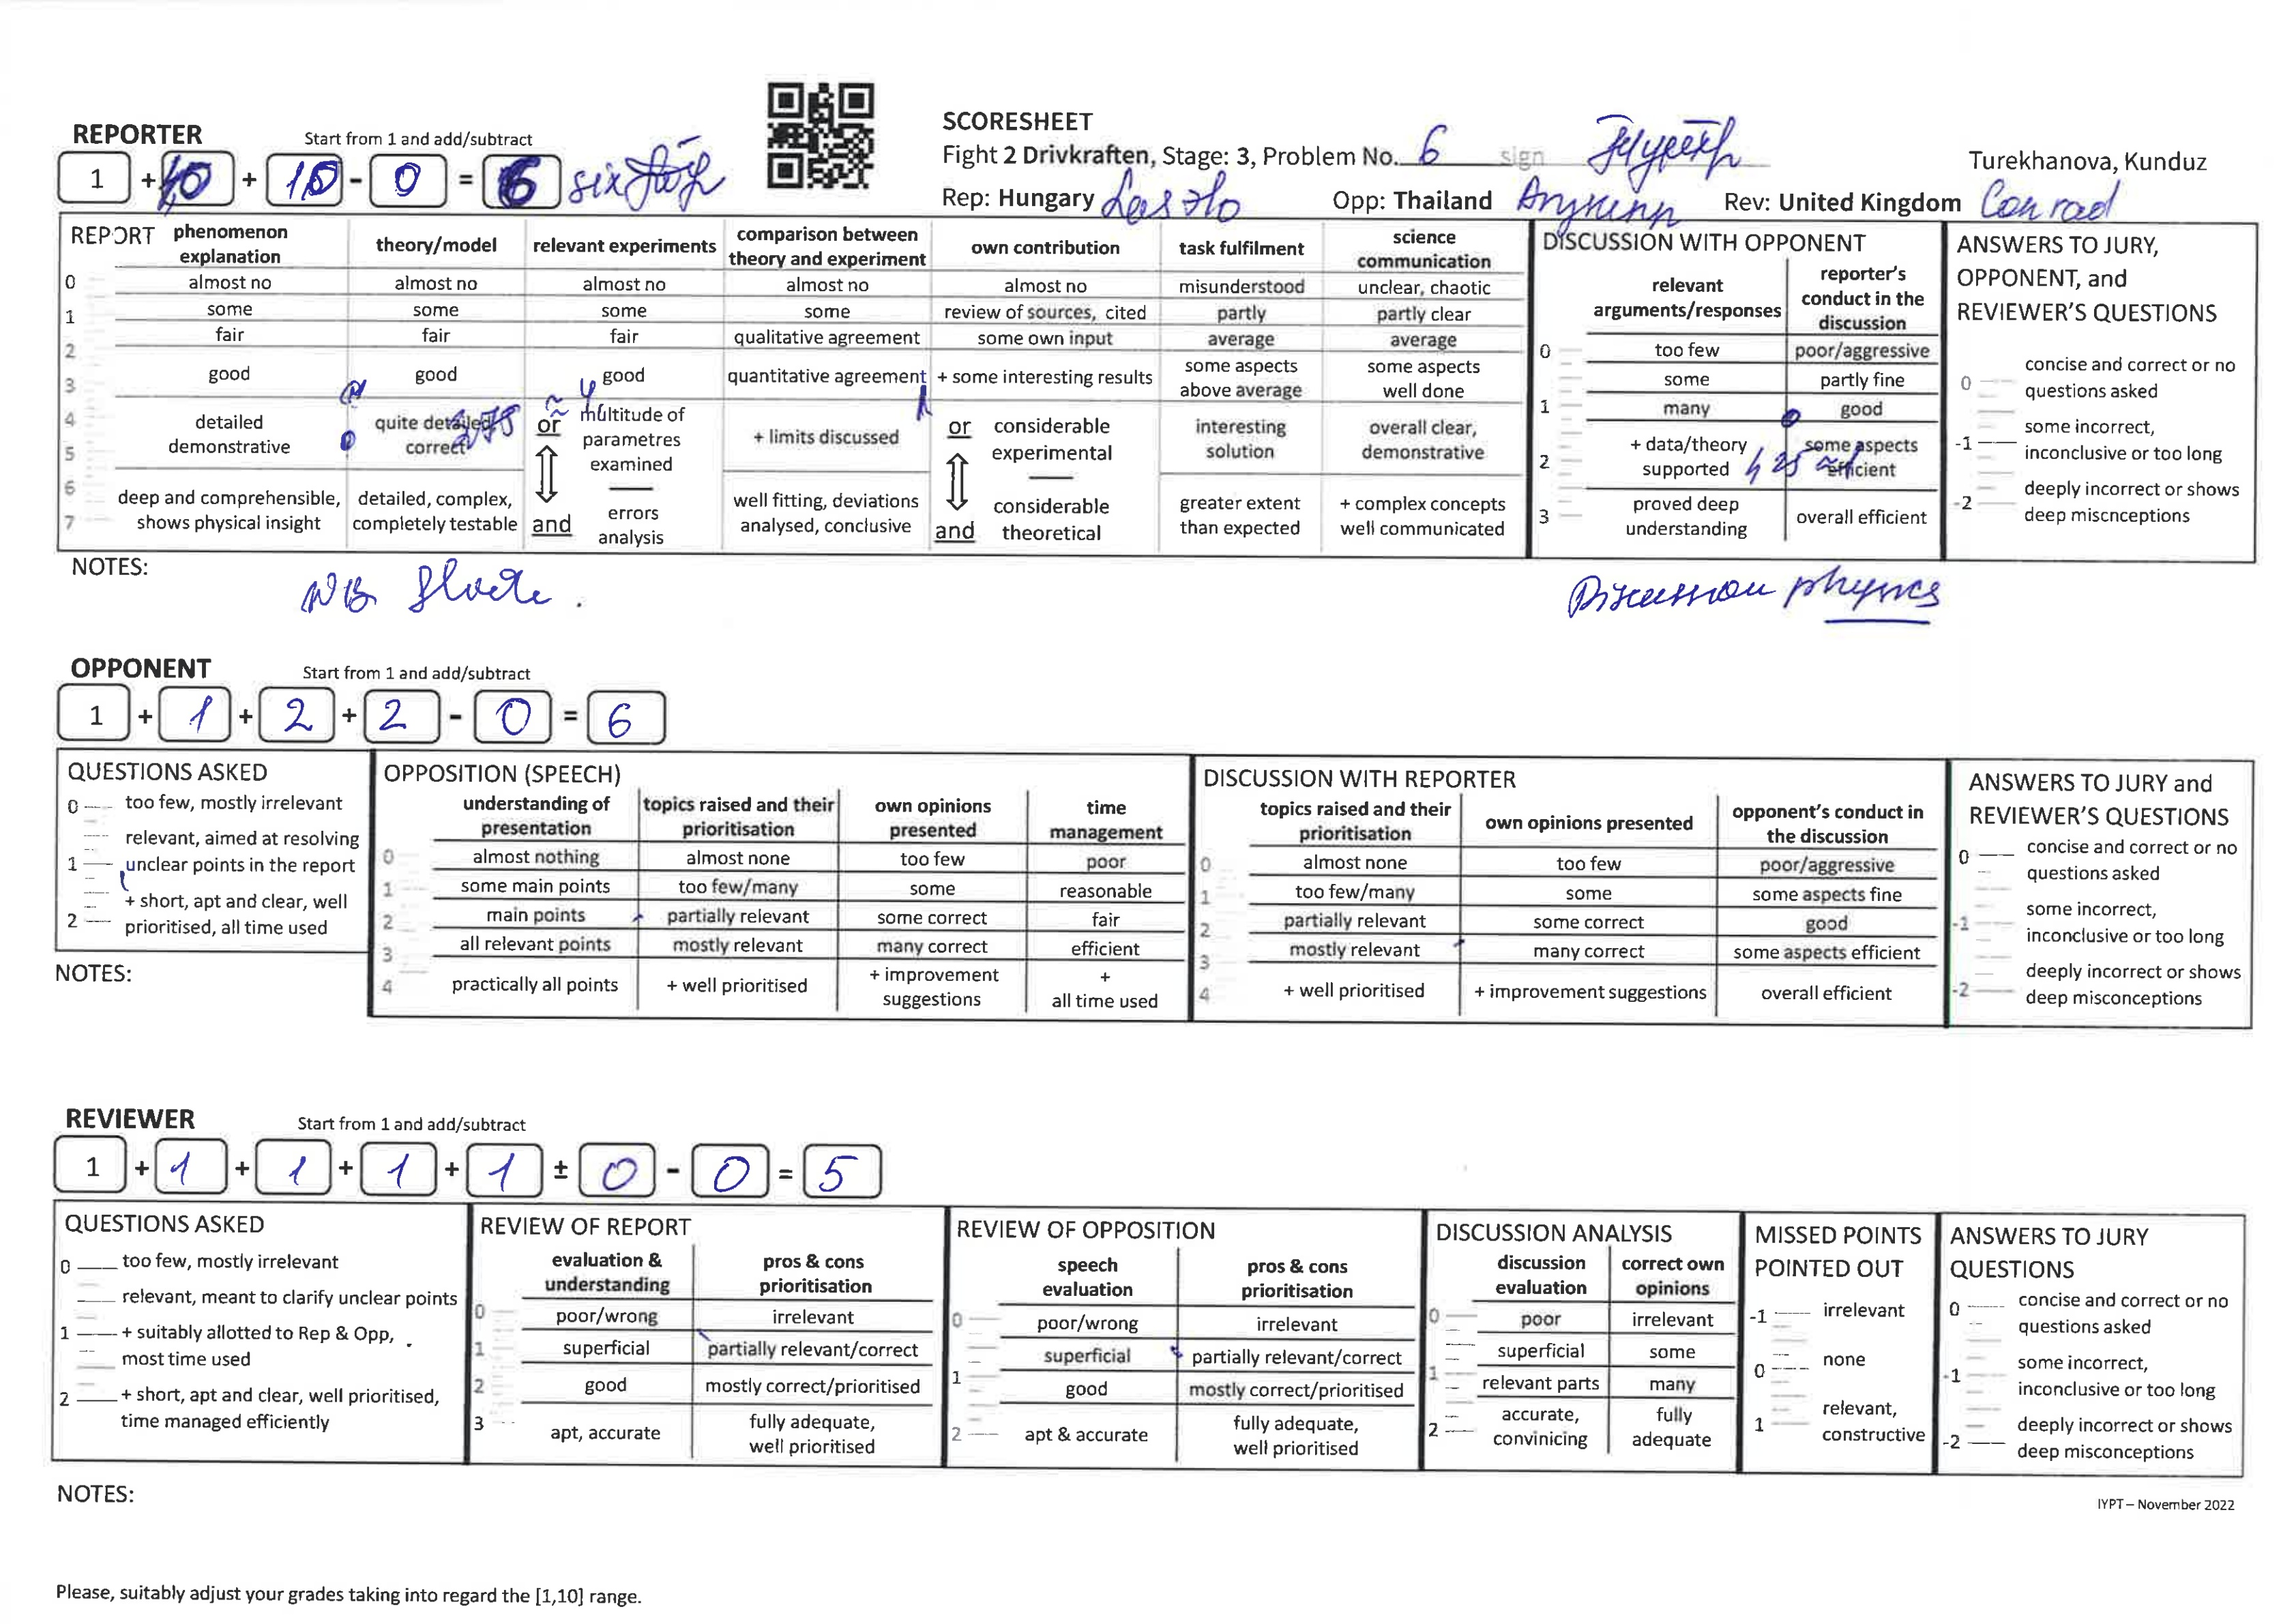 REPORTER Start from 1 and add/subtract
1 + + - 0 = 6 six
SCORESHEET
Fight 2 Drivkraften, Stage: 3, Problem No. 6 sign
Turekhanova, Kunduz
Rep: Hungary Opp: Thailand Rev: United Kingdom Conrad
REPORT phenomenon explanation theory/model relevant experiments comparison between theory and experiment own contribution task fulfilment science communication
0 almost no almost no almost no almost no almost no misunderstood unclear, chaotic
1 some some some some review of sources, cited partly partly clear
2 fair fair fair qualitative agreement some own input average average
3 good good good quantitative agreement + some interesting results some aspects above average some aspects well done
4 5 detailed demonstrative quite detailed correct or multitude of parametres examined + limits discussed or considerable experimental interesting solution overall clear, demonstrative
6 7 deep and comprehensible, shows physical insight detailed, complex, completely testable and errors analysis well fitting, deviations analysed, conclusive and considerable theoretical greater extent than expected + complex concepts well communicated
DISCUSSION WITH OPPONENT
relevant arguments/responses reporter's conduct in the discussion
0 too few poor/aggressive
some partly fine
1 many good
2 + data/theory supported some aspects efficient
3 proved deep understanding overall efficient
ANSWERS TO JURY, OPPONENT, and REVIEWER'S QUESTIONS
0 concise and correct or no questions asked
-1 some incorrect, inconclusive or too long
-2 deeply incorrect or shows deep miscnceptions
NOTES:
Discussion physics
OPPONENT Start from 1 and add/subtract
1 + 1 + 2 + 2 - 0 = 6
QUESTIONS ASKED
0 too few, mostly irrelevant
relevant, aimed at resolving
1 unclear points in the report
+ short, apt and clear, well
2 prioritised, all time used
NOTES:
OPPOSITION (SPEECH)
understanding of presentation topics raised and their prioritisation own opinions presented time management
0 almost nothing almost none too few poor
1 some main points too few/many some reasonable
2 main points partially relevant some correct fair
3 all relevant points mostly relevant many correct efficient
4 practically all points + well prioritised + improvement suggestions + all time used
DISCUSSION WITH REPORTER
topics raised and their prioritisation own opinions presented opponent's conduct in the discussion
0 almost none too few poor/aggressive
1 too few/many some some aspects fine
2 partially relevant some correct good
3 mostly relevant many correct some aspects efficient
4 + well prioritised + improvement suggestions overall efficient
ANSWERS TO JURY and REVIEWER'S QUESTIONS
0 concise and correct or no questions asked
-1 some incorrect, inconclusive or too long
-2 deeply incorrect or shows deep misconceptions
REVIEWER Start from 1 and add/subtract
1 + 1 + 1 + 1 + 1 ± 0 - 0 = 5
QUESTIONS ASKED
0 too few, mostly irrelevant
relevant, meant to clarify unclear points
1 + suitably allotted to Rep & Opp, most time used
2 + short, apt and clear, well prioritised, time managed efficiently
REVIEW OF REPORT
evaluation & understanding pros & cons prioritisation
0 poor/wrong irrelevant
1 superficial partially relevant/correct
2 good mostly correct/prioritised
3 apt, accurate fully adequate, well prioritised
REVIEW OF OPPOSITION
speech evaluation pros & cons prioritisation
0 poor/wrong irrelevant
superficial partially relevant/correct
1 good mostly correct/prioritised
2 apt & accurate fully adequate, well prioritised
DISCUSSION ANALYSIS
discussion evaluation correct own opinions
0 poor irrelevant
superficial some
1 relevant parts many
2 accurate, convinicing fully adequate
MISSED POINTS POINTED OUT
-1 irrelevant
0 none
1 relevant, constructive
ANSWERS TO JURY QUESTIONS
0 concise and correct or no questions asked
-1 some incorrect, inconclusive or too long
-2 deeply incorrect or shows deep misconceptions
NOTES:
IYPT – November 2022
Please, suitably adjust your grades taking into regard the [1,10] range.